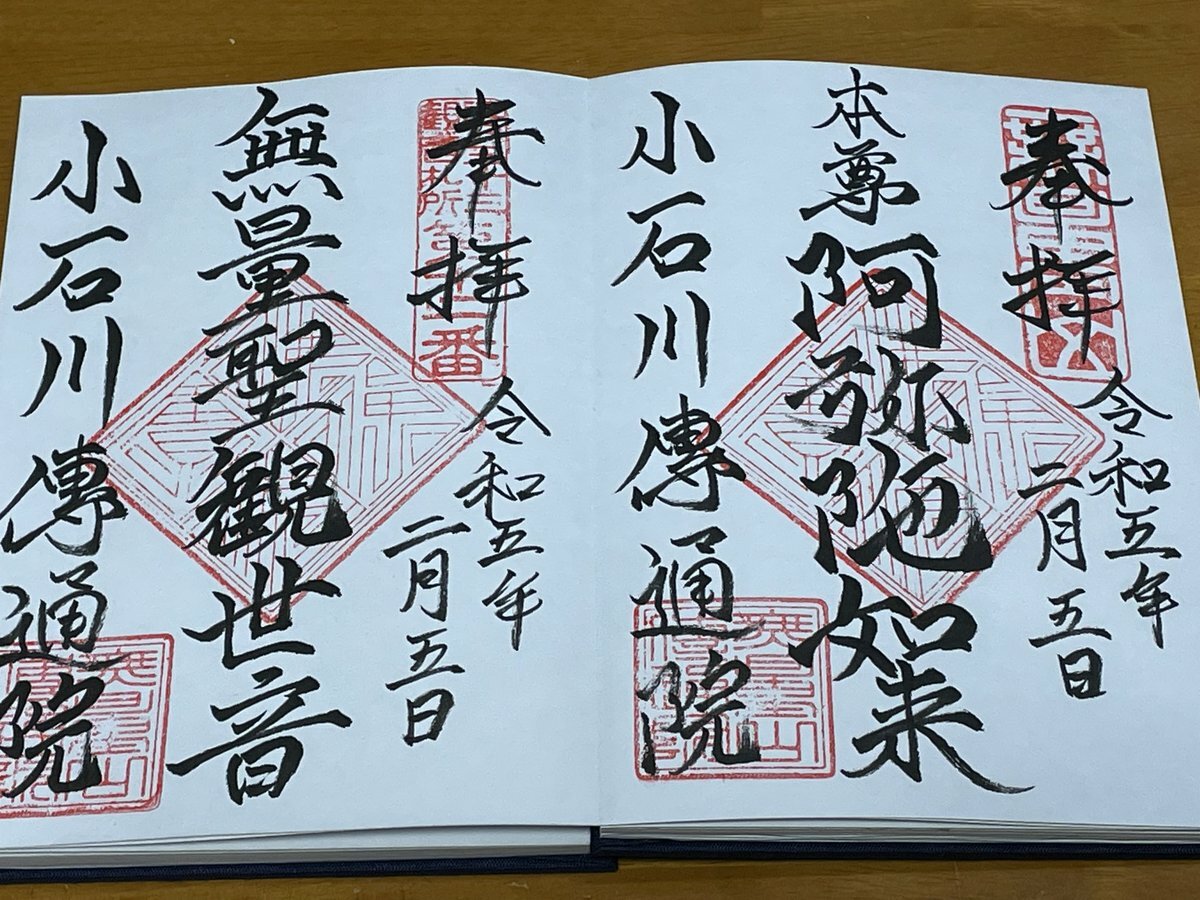 奉拝
令和五年
二月五日
本尊阿弥陀如来
小石川傳通院
奉拝
令和五年
二月五日
無量聖観世音
小石川傳通院